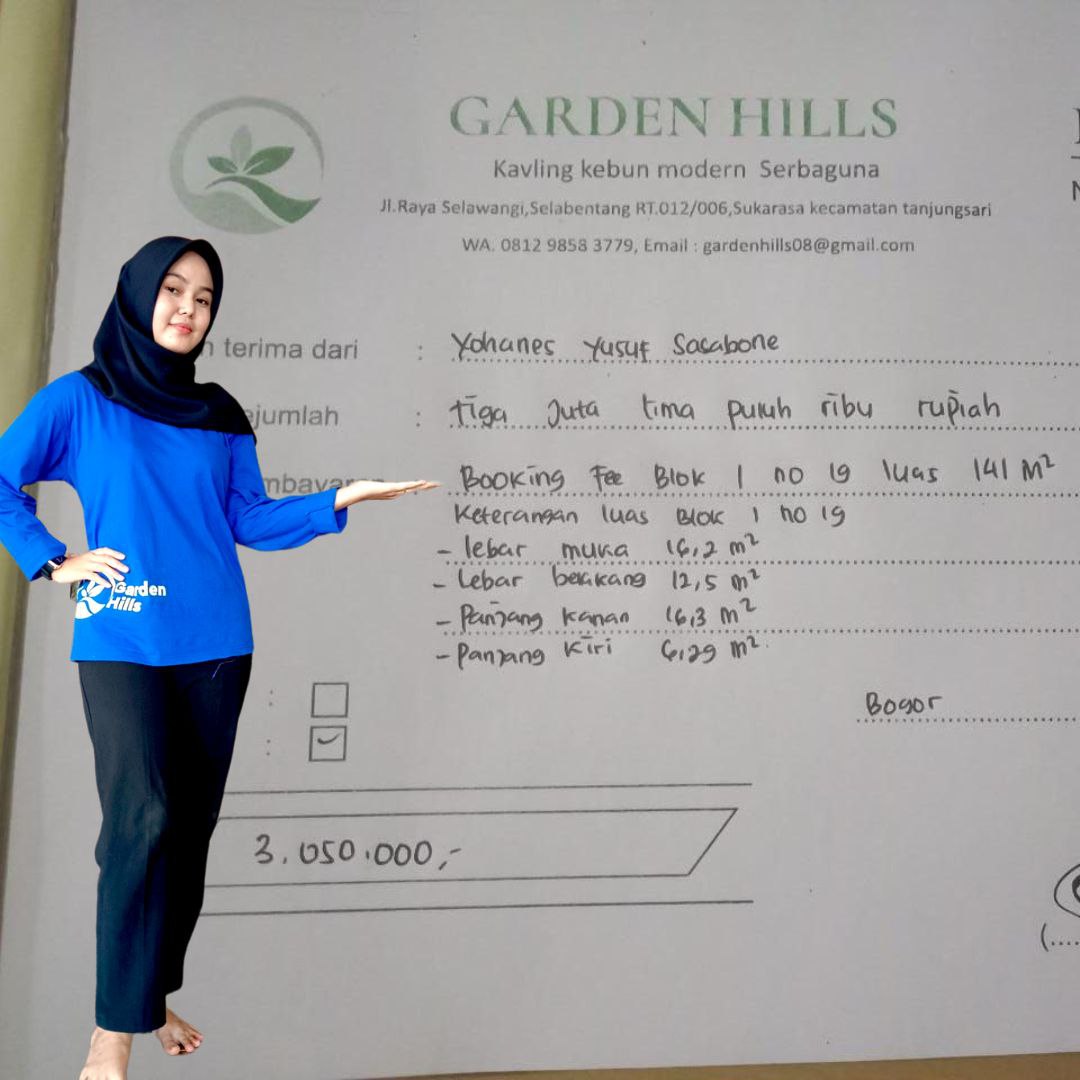 GARDEN HILLS
Kavling kebun modern Serbaguna
Jl.Raya Selawangi,Selabentang RT.012/006,Sukarasa kecamatan tanjungsari
WA. 0812 9858 3779, Email : gardenhills08@gmail.com
terima dari : Yohanes Yusuf Sacabone
: Tiga Juta Lima puluh ribu rupiah
Booking Fee Blok 1 no 19 luas 141 M²
Keterangan luas Blok 1 no 19
- lebar muka 16,2 m²
- Lebar belakang 12,5 m²
- Panjang kanan 16,3 m²
- Panjang kiri 6,29 m²
Garden
Hills
Bogor
3.050.000,-